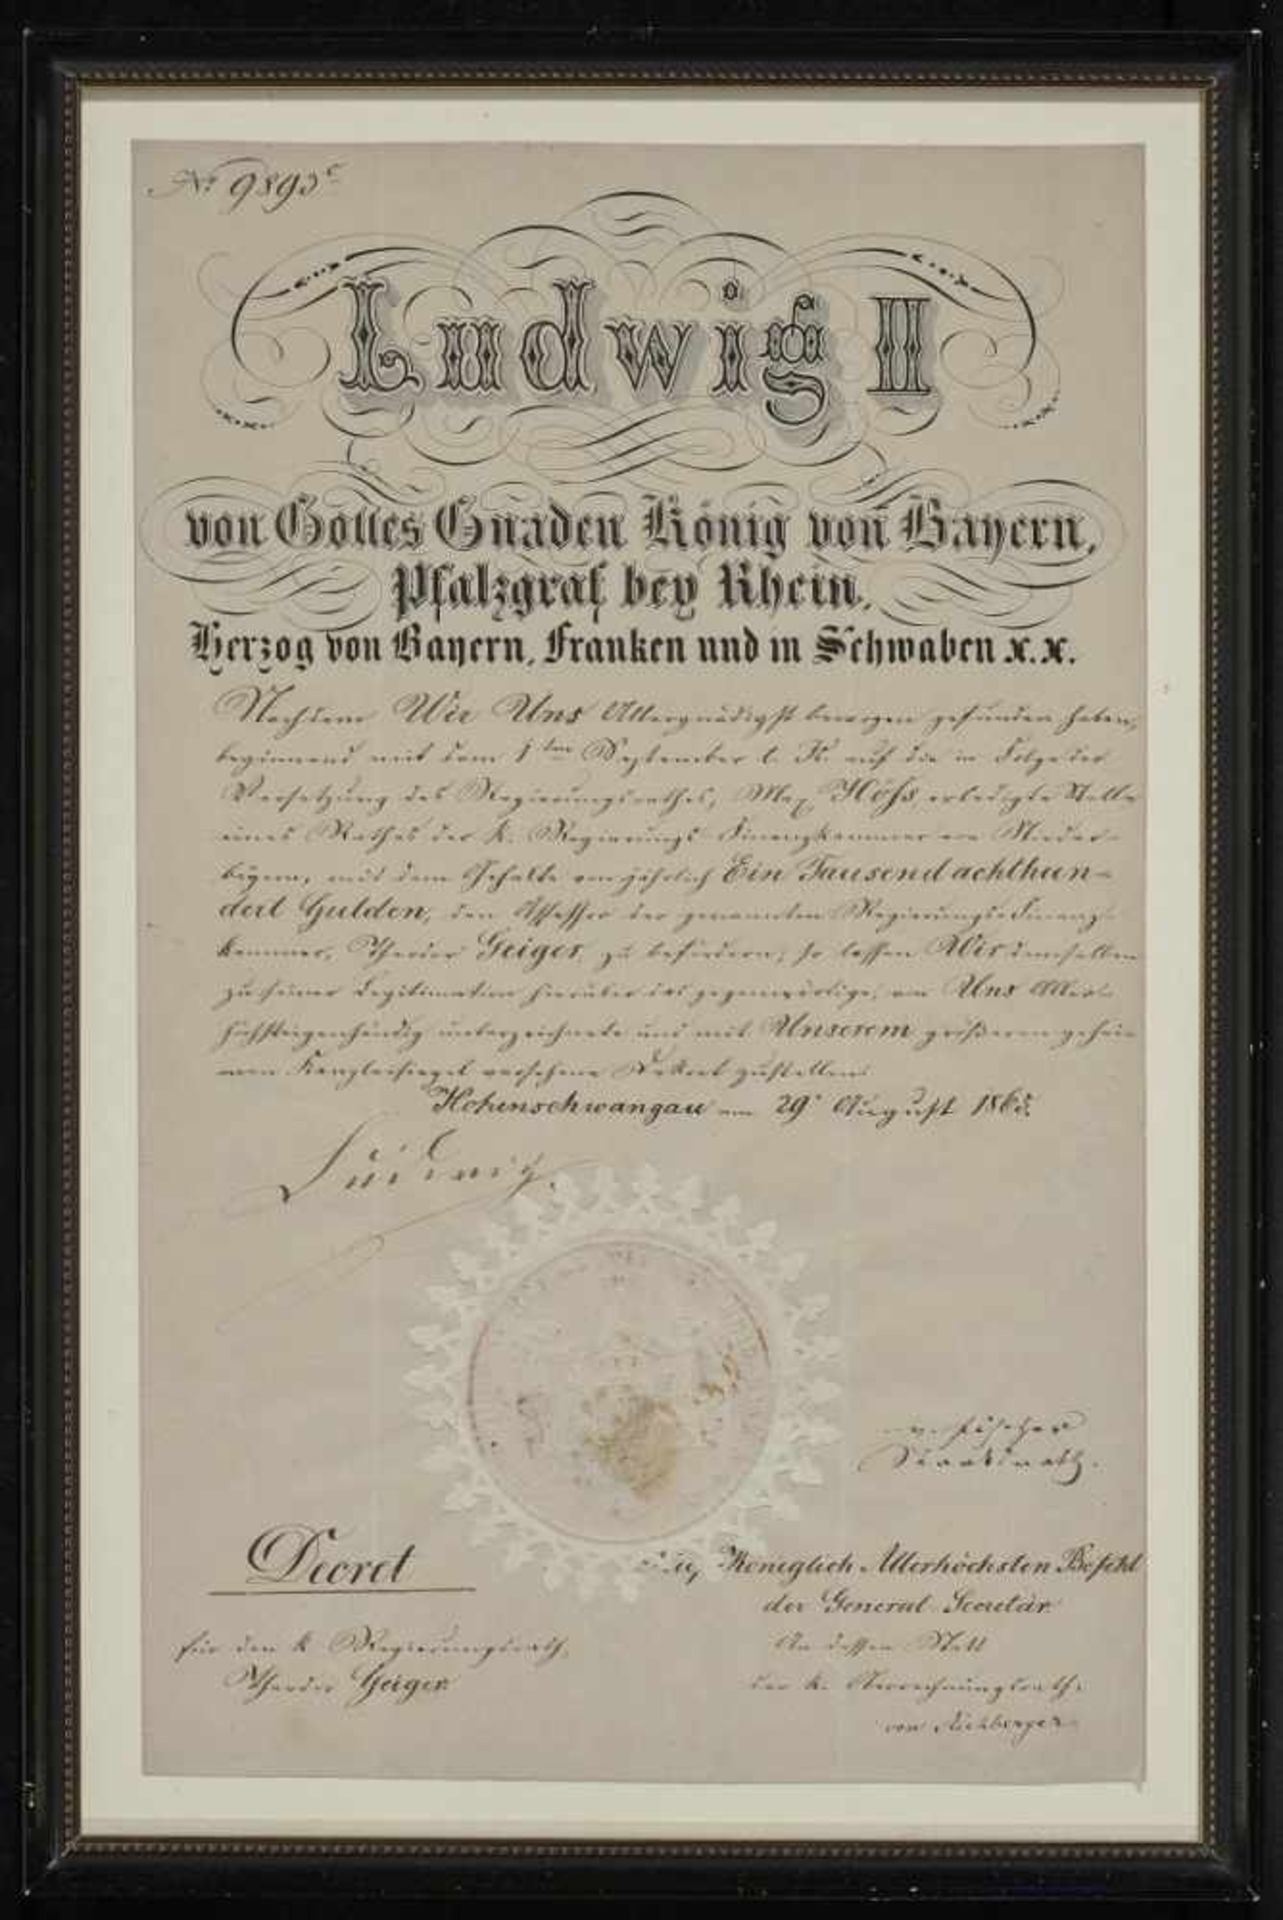 No 9893
Ludwig II
von Gottes Gnaden König von Bayern,
Pfalzgraf bey Rhein,
Herzog von Bayern, Franken und in Schwaben x.x.
Nachdem Wir Uns Allergnädigst bewogen gefunden haben,
beginnend mit dem 1ten September l. Js. auf die in Folge der
Versetzung des Regierungsrathes, Max Höss erledigte Stelle
eines Rathes der k. Regierungs Finanzkammer von Nieder-
bayern, mit dem Gehalte von jährlich Ein Tausend achthun-
dert Gulden, den Assessor der genannten Regierungs-Finanz-
kammer, Theodor Geiger, zu befördern; so lassen Wir demselben
zu seiner Legitimation hierüber das gegenwärtige, von Uns Aller-
höchsteigenhändig unterzeichnete und mit Unserem größeren gehei-
men Kanzleisiegel versehene Dekret zustellen.
Hohenschwangau am 29. August 1865.
Ludwig.
v. Fischer
Staatsrath.
Decret
Königlich Allerhöchsten Befehl
der General-Secretär.
für den k. Regierungsrath,
An dessen Statt
Theodor Geiger
der k. Oberrechnungsrath.
von